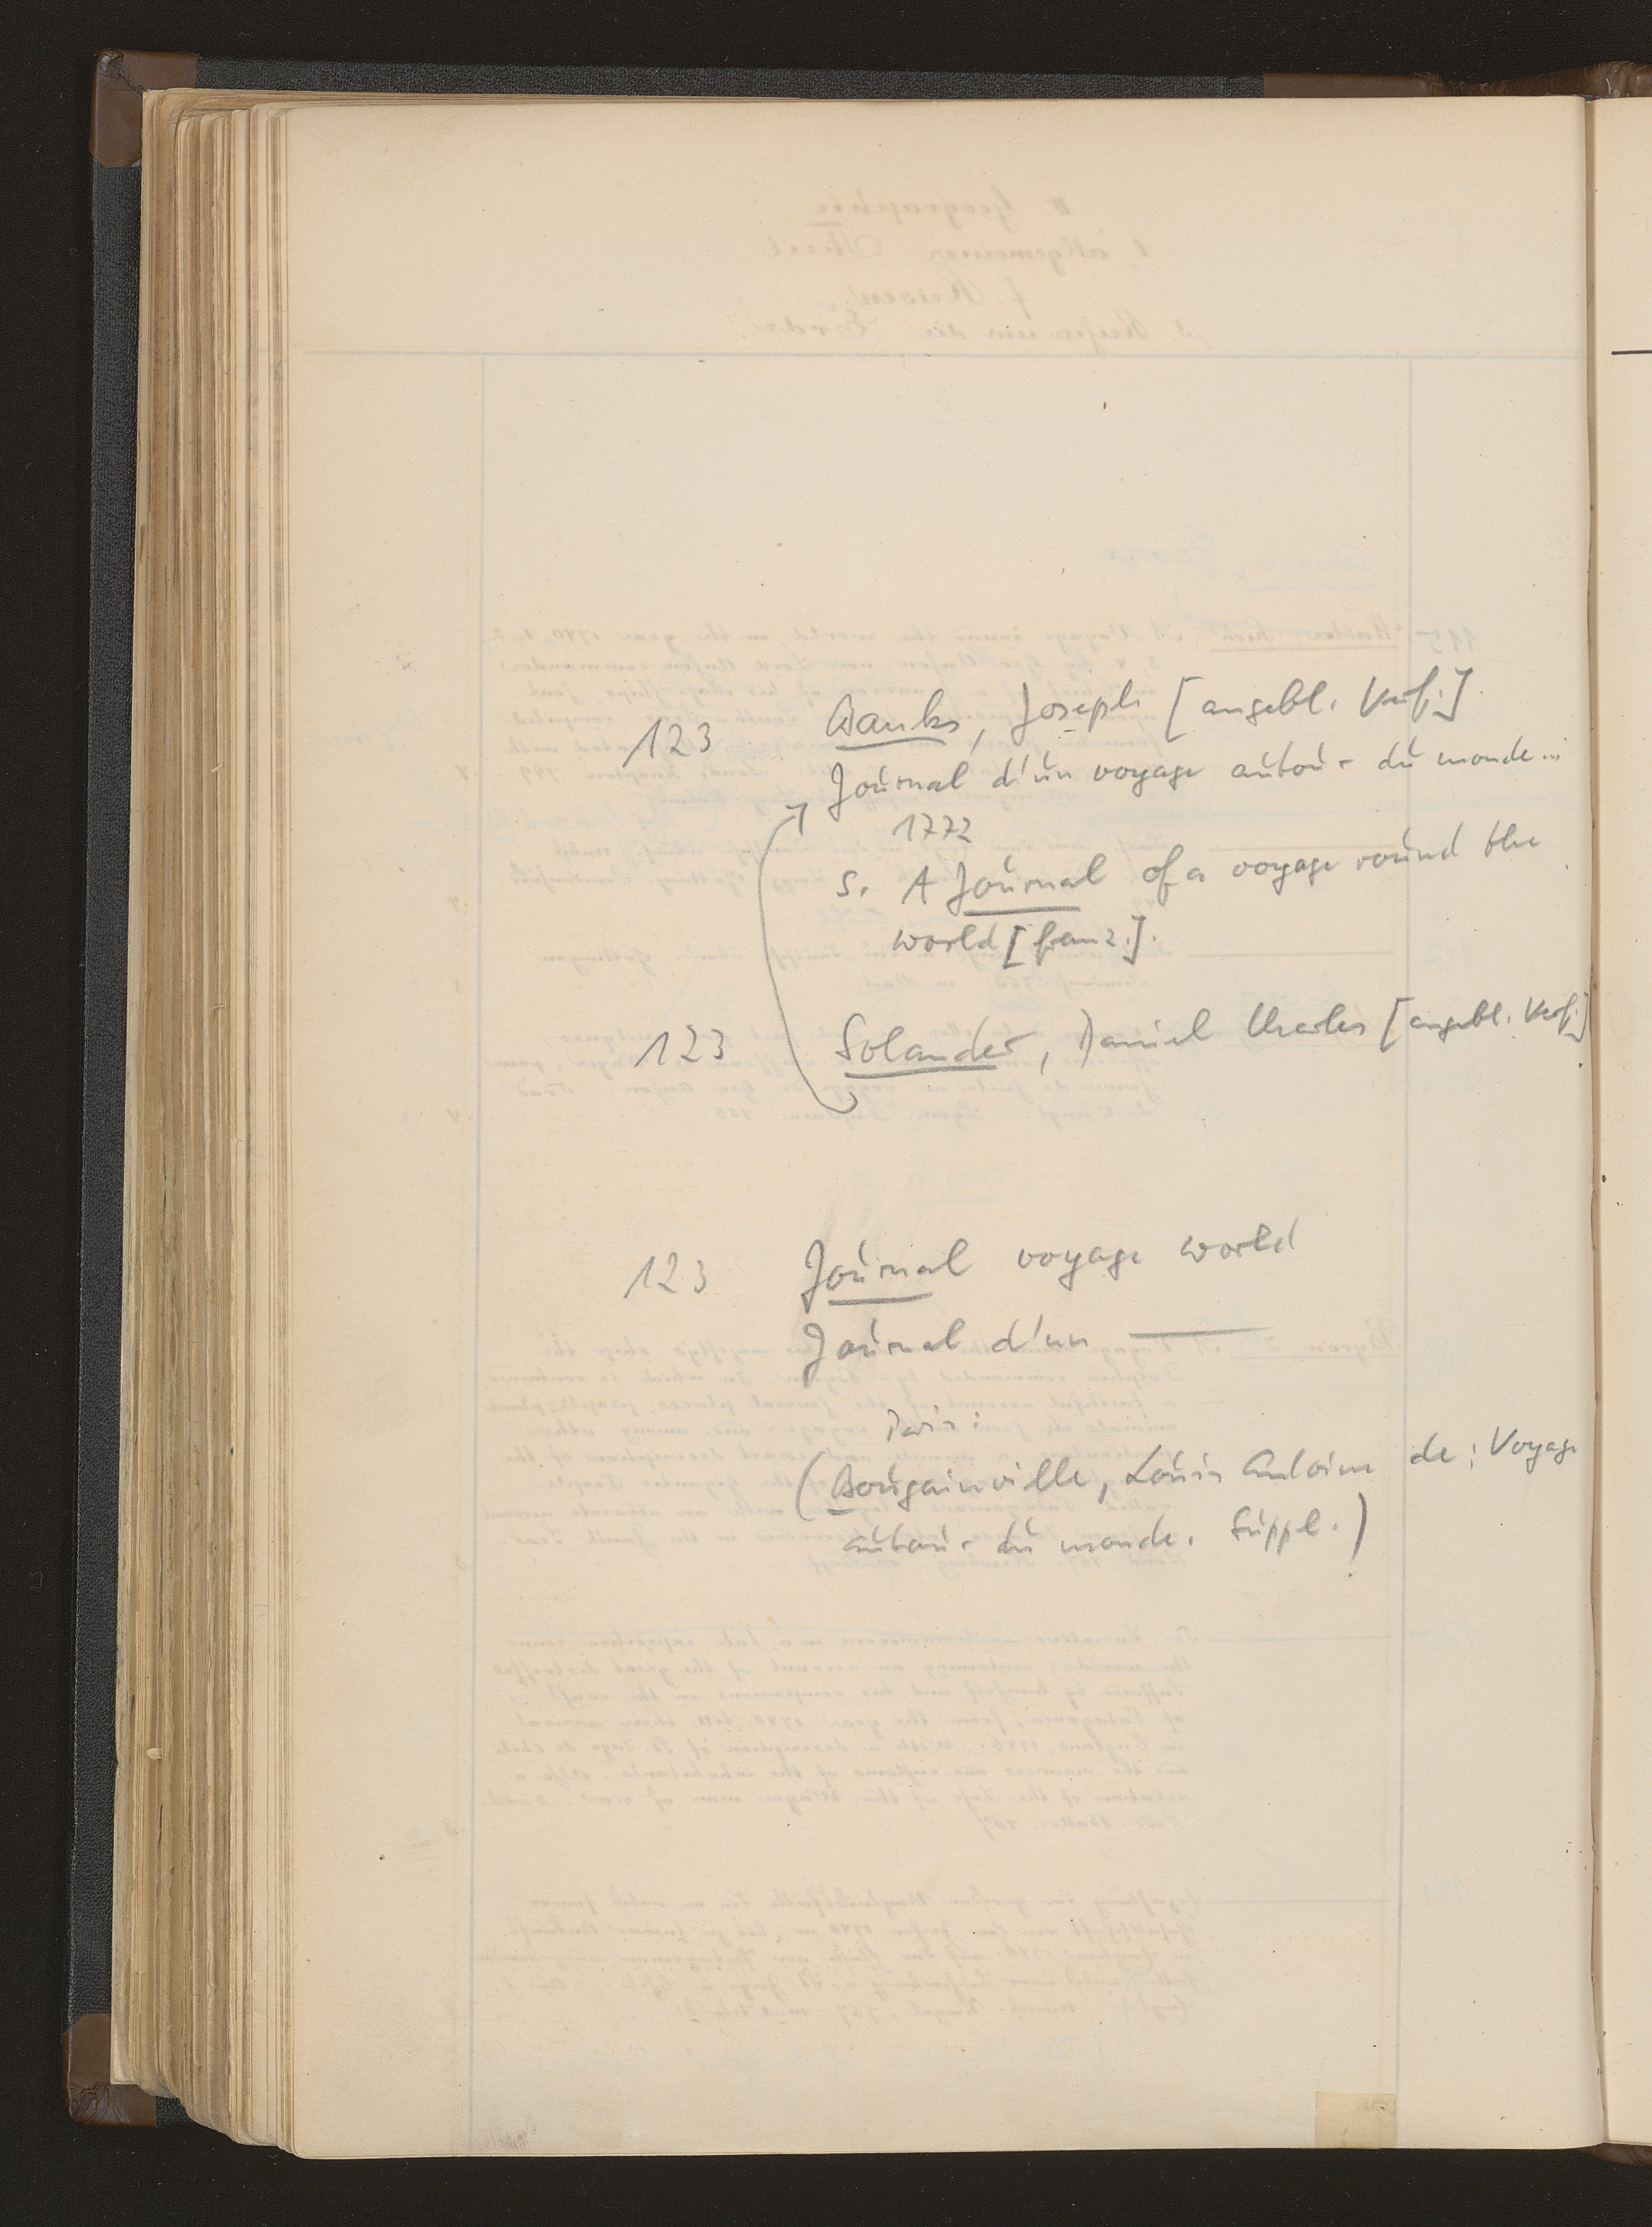 123 Banks, Joseph [angebl. Verf.].
Journal d'un voyage autour du monde...
1772
s. A Journal of a voyage round the
world [franz.].
123 Solander, Daniel Charles [angebl. Verf.]
123 Journal voyage world
Journal d'un ———
Darin:
(Bougainville, Louis Antoine de: Voyage
autour du monde. Suppl.)